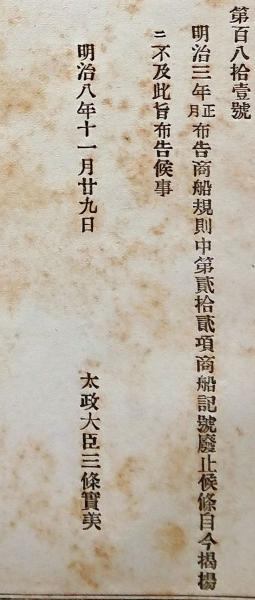 第百八拾壹號
明治三年正月布告商船規則中第貳拾貳項商船記號廢止候條自今揭揚
ニ不及此旨布告候事
明治八年十一月廿九日
太政大臣三條實美